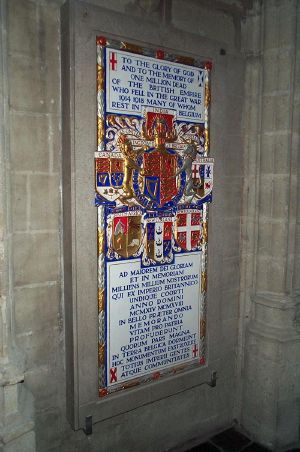 TO THE GLORY OF GOD
AND TO THE MEMORY OF
ONE MILLION DEAD
OF THE BRITISH EMPIRE
WHO FELL IN THE GREAT WAR
1914 1918 MANY OF WHOM
REST IN BELGIUM
INDIA
CANADA
AD MAIOREM DEI GLORIAM
ET IN MEMORIAM
MILLIENS MILLIUM NOSTRORUM
QUI EX IMPERIO BRITANNICO
UNDIQUE COORTI
ANNO DOMINI
MCMXIV MCMXVIII
IN BELLO PRÆTER OMNIA
MEMORANDO
VITAM PRO PATRIA
PROFUDERUNT
QUORUM PARS MAGNA
IN TERRA BELGICA DORMIENT
HOC MONUMENTUM EXSTRUXIT
TOTIUS IMPERII GENTES
ATQUE COMMUNITATES